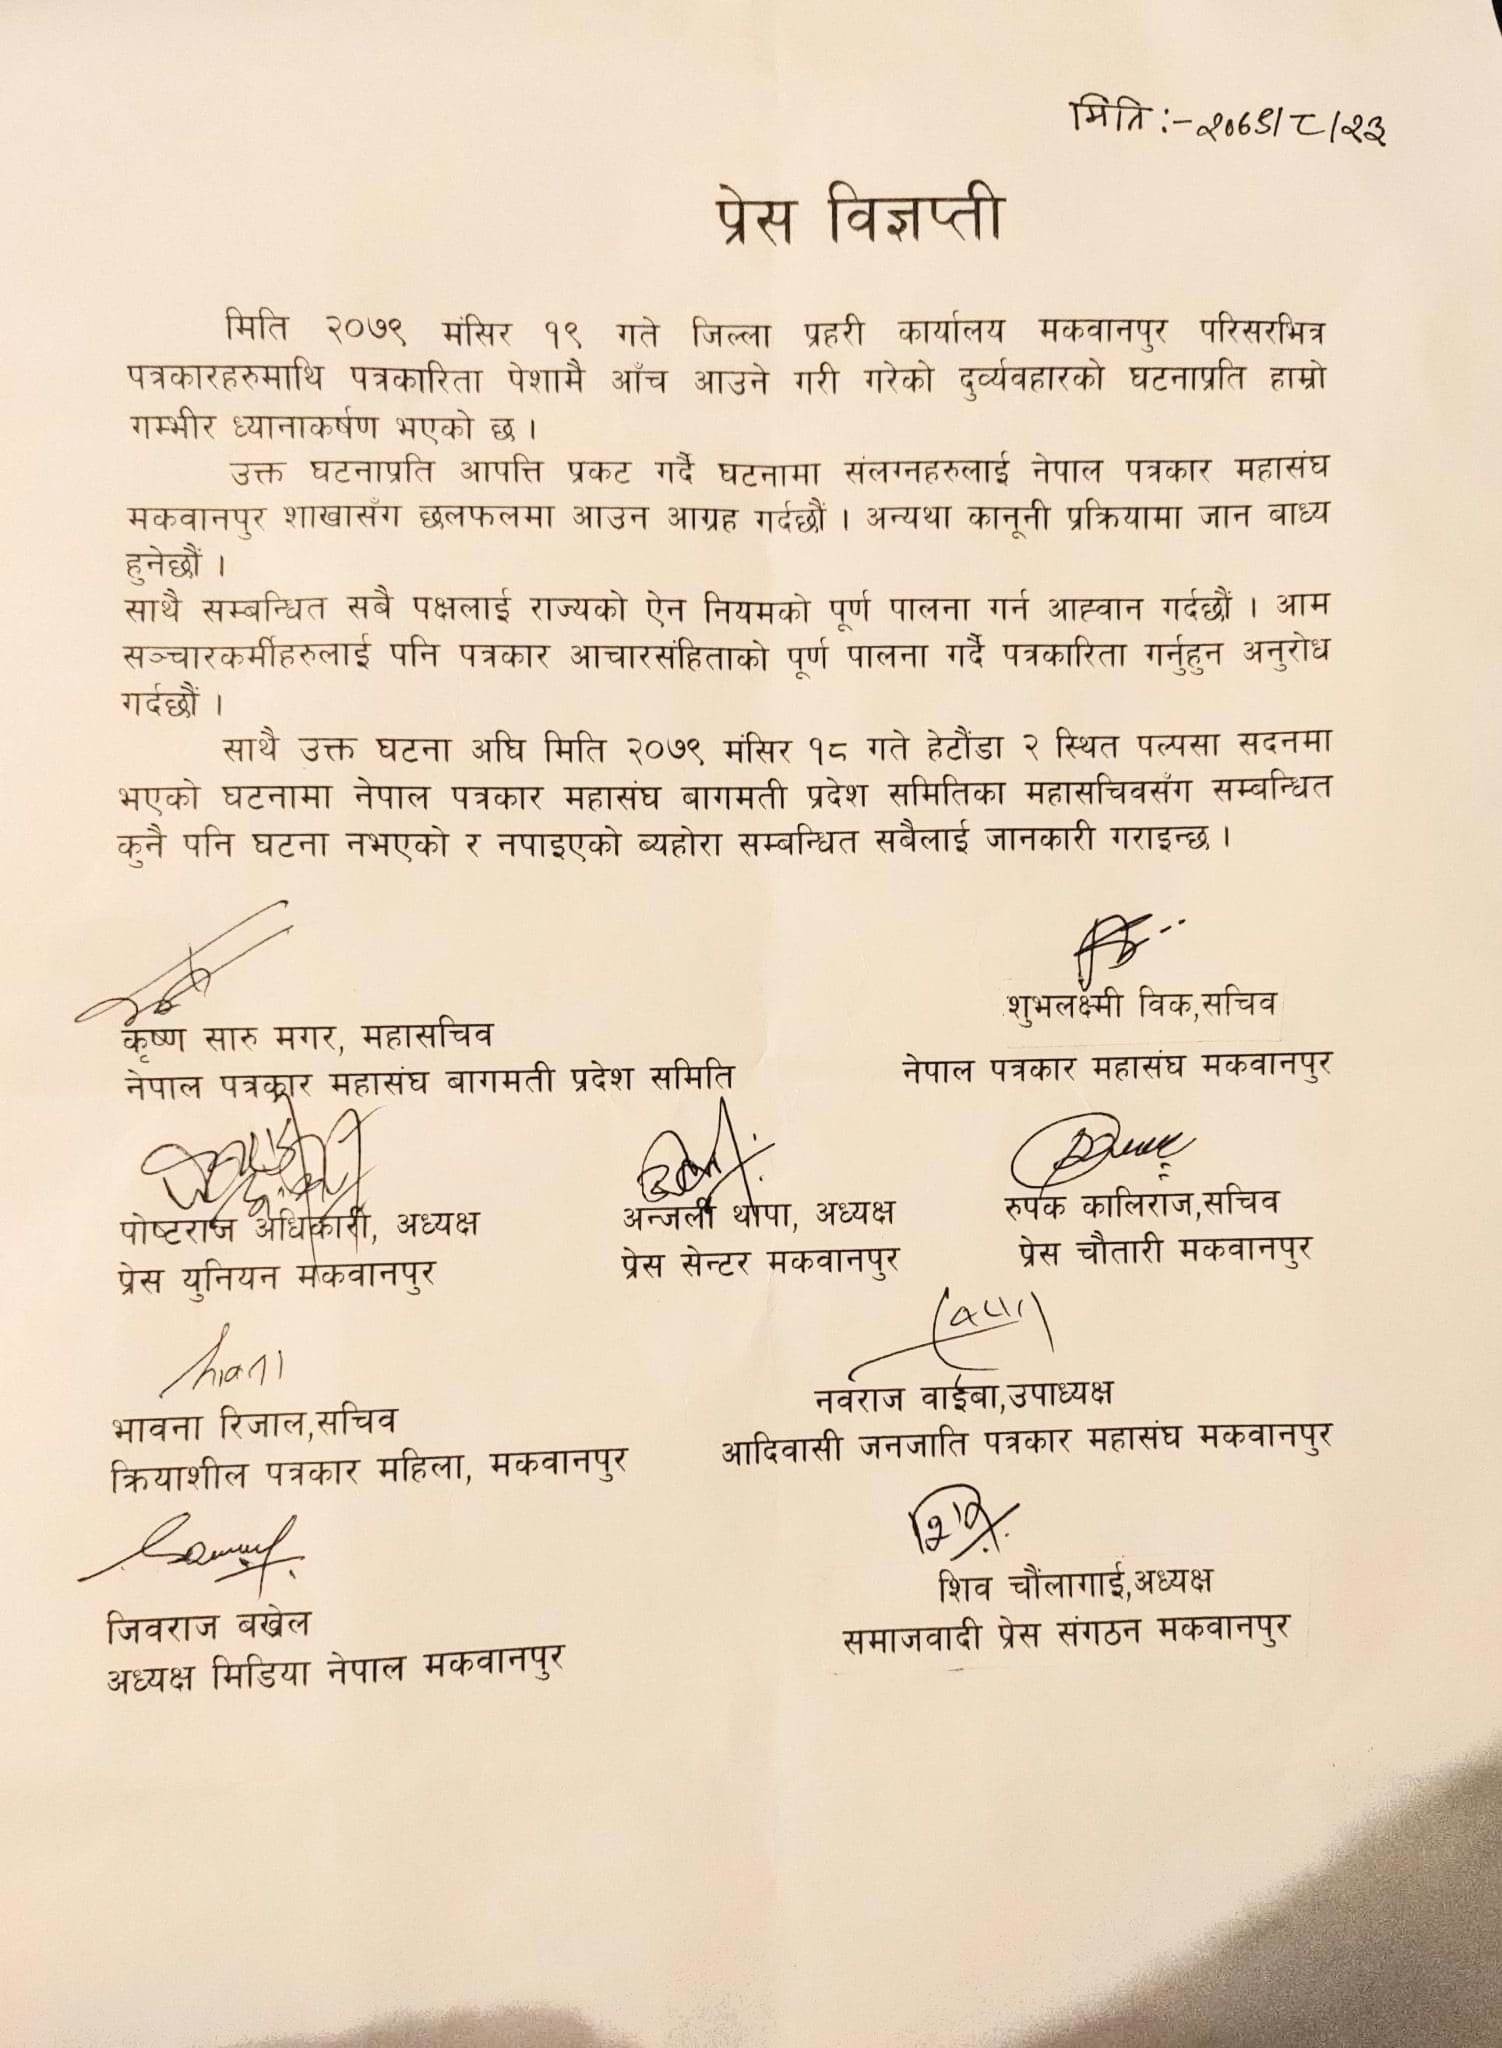 मिति :- २०७९/८/२३
प्रेस विज्ञप्ती
मिति २०७९ मंसिर १९ गते जिल्ला प्रहरी कार्यालय मकवानपुर परिसरभित्र
पत्रकारहरुमाथि पत्रकारिता पेशामै आँच आउने गरी गरेको दुर्व्यवहारको घटनाप्रति हाम्रो
गम्भीर ध्यानाकर्षण भएको छ ।
उक्त घटनाप्रति आपत्ति प्रकट गर्दै घटनामा संलग्नहरुलाई नेपाल पत्रकार महासंघ
मकवानपुर शाखासँग छलफलमा आउन आग्रह गर्दछौं । अन्यथा कानूनी प्रक्रियामा जान बाध्य
हुनेछौं ।
साथै सम्बन्धित सबै पक्षलाई राज्यको ऐन नियमको पूर्ण पालना गर्न आह्वान गर्दछौं । आम
सञ्चारकर्मीहरुलाई पनि पत्रकार आचारसंहिताको पूर्ण पालना गर्दै पत्रकारिता गर्नुहुन अनुरोध
गर्दछौं ।
साथै उक्त घटना अघि मिति २०७९ मंसिर १८ गते हेटौंडा २ स्थित पल्पसा सदनमा
भएको घटनामा नेपाल पत्रकार महासंघ बागमती प्रदेश समितिका महासचिवसँग सम्बन्धित
कुनै पनि घटना नभएको र नपाइएको ब्यहोरा सम्बन्धित सबैलाई जानकारी गराइन्छ ।
कृष्ण सारु मगर, महासचिव
नेपाल पत्रकार महासंघ बागमती प्रदेश समिति
शुभलक्ष्मी विक,सचिव
नेपाल पत्रकार महासंघ मकवानपुर
पोष्टराज अधिकारी, अध्यक्ष
प्रेस युनियन मकवानपुर
अन्जली थापा, अध्यक्ष
प्रेस सेन्टर मकवानपुर
रुपक कालिराज,सचिव
प्रेस चौतारी मकवानपुर
भावना रिजाल,सचिव
क्रियाशील पत्रकार महिला, मकवानपुर
नवराज वाईबा,उपाध्यक्ष
आदिवासी जनजाति पत्रकार महासंघ मकवानपुर
जिवराज बखेल
अध्यक्ष मिडिया नेपाल मकवानपुर
शिव चौंलागाई,अध्यक्ष
समाजवादी प्रेस संगठन मकवानपुर